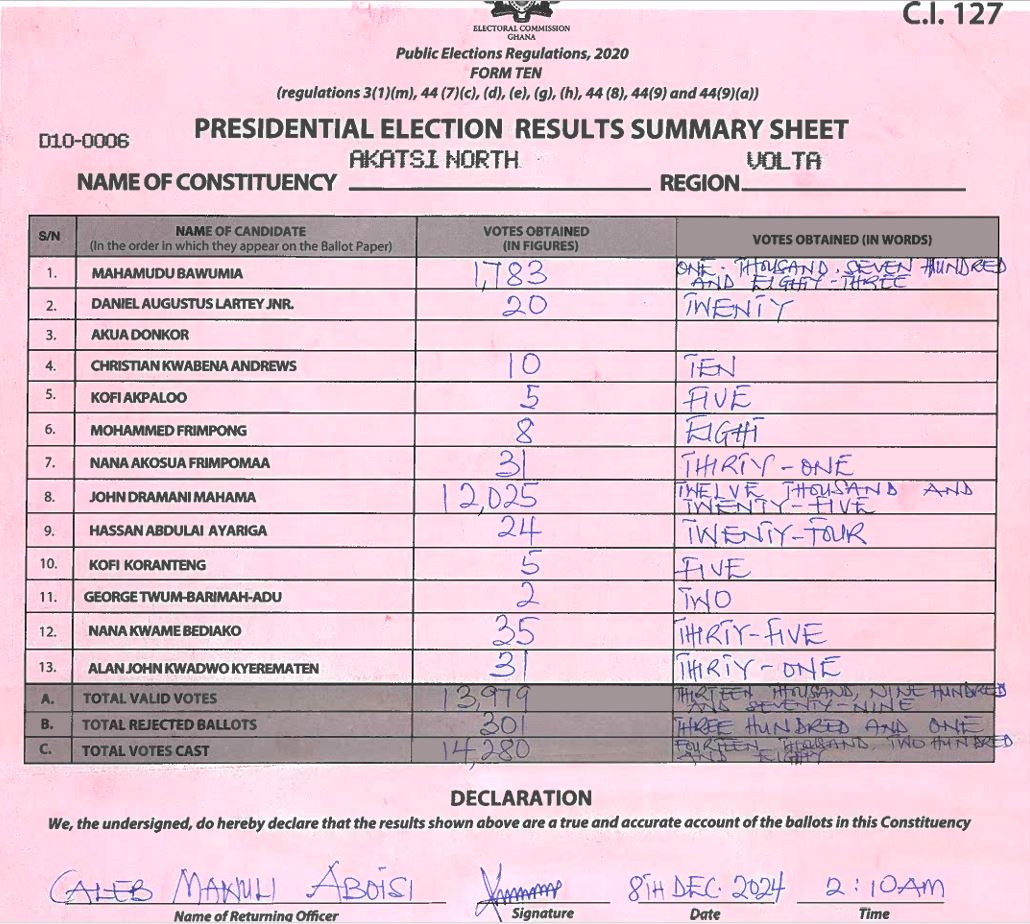 C.I. 127
ELECTORAL COMMISSION
GHANA
Public Elections Regulations, 2020
FORM TEN
(regulations 3(1)(m), 44 (7)(c), (d), (e), (g), (h), 44 (8), 44(9) and 44(9)(a))
D10-0006
PRESIDENTIAL ELECTION RESULTS SUMMARY SHEET
NAME OF CONSTITUENCY AKATSI NORTH REGION VOLTA
S/N NAME OF CANDIDATE (In the order in which they appear on the Ballot Paper) VOTES OBTAINED (IN FIGURES) VOTES OBTAINED (IN WORDS)
1. MAHAMUDU BAWUMIA 1,783 ONE THOUSAND, SEVEN HUNDRED AND EIGHTY-THREE
2. DANIEL AUGUSTUS LARTEY JNR. 20 TWENTY
3. AKUA DONKOR
4. CHRISTIAN KWABENA ANDREWS 10 TEN
5. KOFI AKPALOO 5 FIVE
6. MOHAMMED FRIMPONG 8 EIGHT
7. NANA AKOSUA FRIMPOMAA 31 THIRTY-ONE
8. JOHN DRAMANI MAHAMA 12,025 TWELVE THOUSAND AND TWENTY-FIVE
9. HASSAN ABDULAI AYARIGA 24 TWENTY-FOUR
10. KOFI KORANTENG 5 FIVE
11. GEORGE TWUM-BARIMAH-ADU 2 TWO
12. NANA KWAME BEDIAKO 35 THIRTY-FIVE
13. ALAN JOHN KWADWO KYEREMATEN 31 THIRTY-ONE
A. TOTAL VALID VOTES 13,979 THIRTEEN THOUSAND, NINE HUNDRED AND SEVENTY-NINE
B. TOTAL REJECTED BALLOTS 301 THREE HUNDRED AND ONE
C. TOTAL VOTES CAST 14,280 FOURTEEN THOUSAND TWO HUNDRED AND EIGHTY
DECLARATION
We, the undersigned, do hereby declare that the results shown above are a true and accurate account of the ballots in this Constituency
CALEB ABOISI 8TH DEC. 2024 2:10AM
Name of Returning Officer Signature Date Time